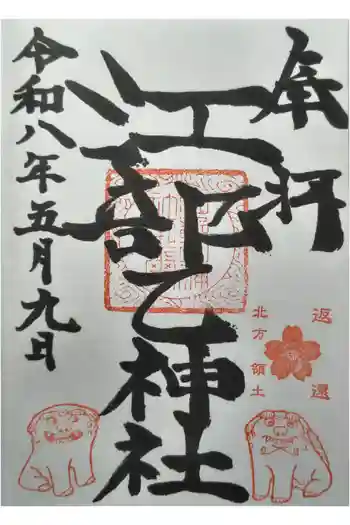 奉拝
返還
北方領土
江部乙神社
令和八年五月九日